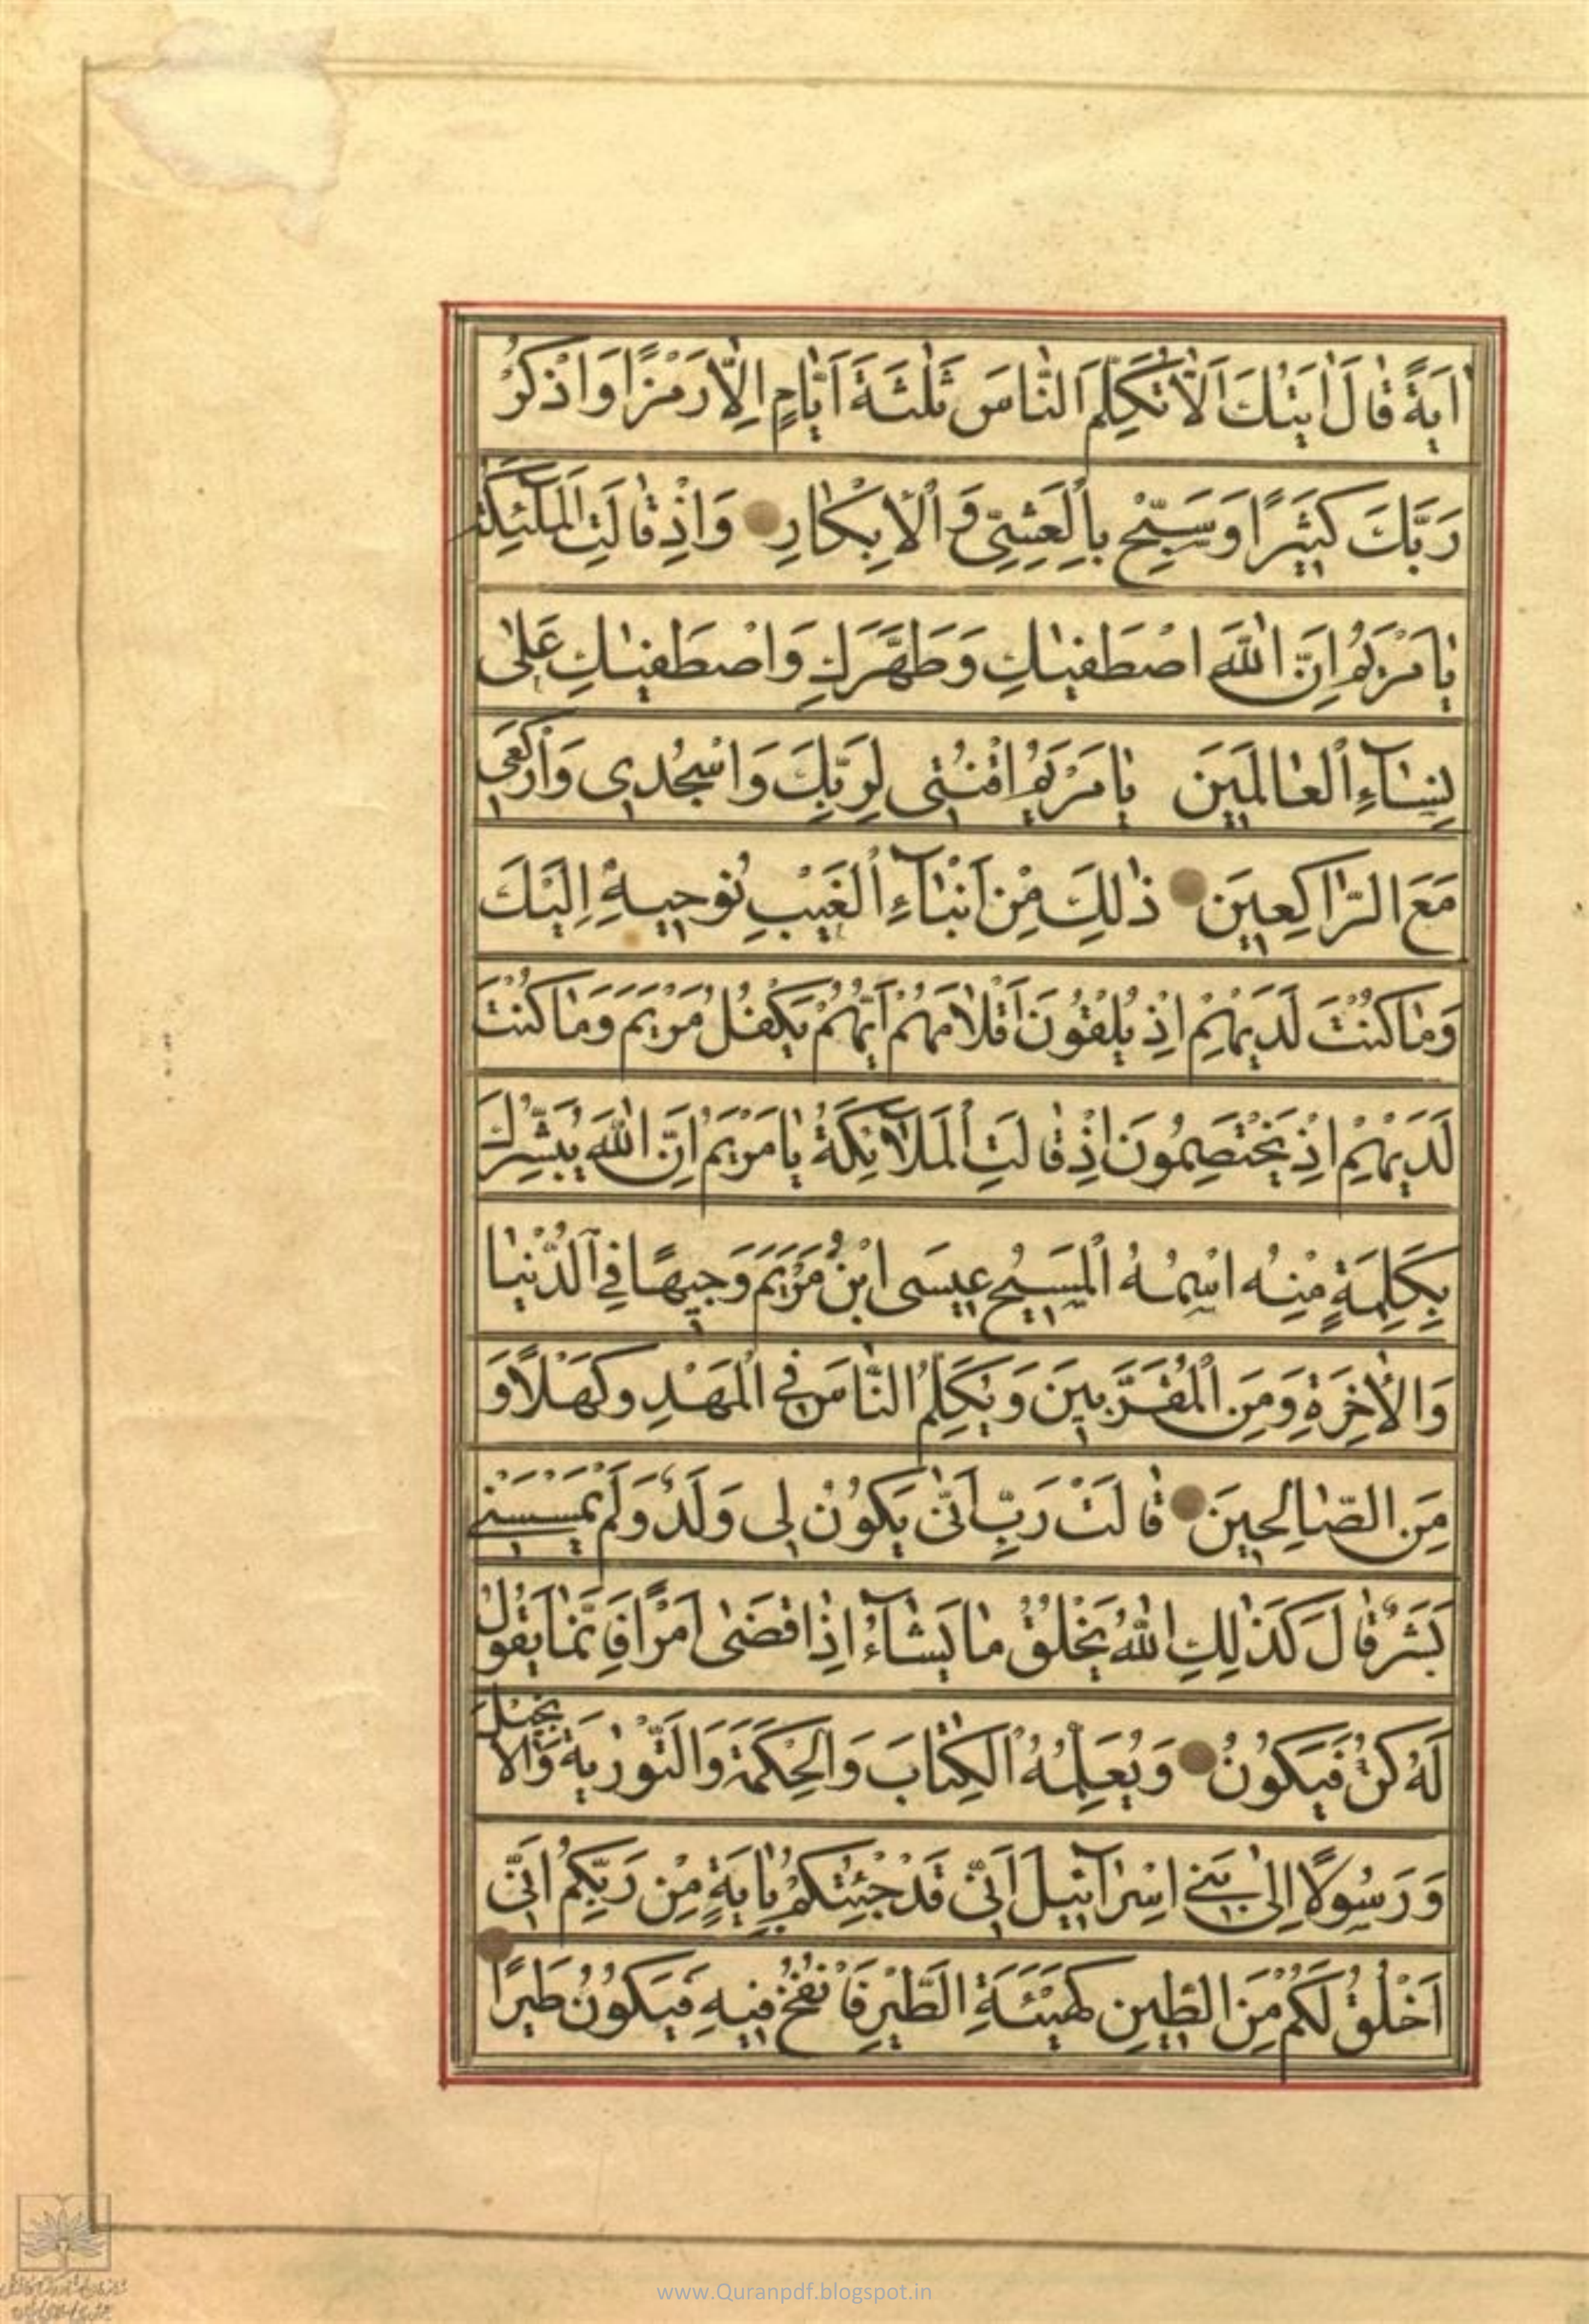 اٰيَةً قٰالَ اٰيَتُكَ اَلّٰا تُكَلِّمَ النّٰاسَ ثَلٰثَةَ اَيّٰامٍ اِلّٰا رَمْزًا وَاذْكُرْ
رَبَّكَ كَثيرًا وَسَبِّحْ بِالْعَشِيِّ وَالْاِبْكٰارِ وَاِذْ قٰالَتِ الْمَلٰٓئِكَةُ
يٰا مَرْيَمُ اِنَّ اللّٰهَ اصْطَفيٰكِ وَطَهَّرَكِ وَاصْطَفيٰكِ عَلىٰ
نِسٰآءِ الْعٰالَمينَ يٰا مَرْيَمُ اقْنُتى لِرَبِّكِ وَاسْجُدى وَارْكَعى
مَعَ الرّٰاكِعينَ ذٰلِكَ مِنْ اَنْبٰآءِ الْغَيْبِ نُوحيهِ اِلَيْكَ
وَمٰا كُنْتَ لَدَيْهِمْ اِذْ يُلْقُونَ اَقْلٰامَهُمْ اَيُّهُمْ يَكْفُلُ مَرْيَمَ وَمٰا كُنْتَ
لَدَيْهِمْ اِذْ يَخْتَصِمُونَ اِذْ قٰالَتِ الْمَلٰٓائِكَةُ يٰا مَرْيَمُ اِنَّ اللّٰهَ يُبَشِّرُكِ
بِكَلِمَةٍ مِنْهُ اسْمُهُ الْمَسيحُ عيسَى ابْنُ مَرْيَمَ وَجيهًا فِي الدُّنْيٰا
وَالْاٰخِرَةِ وَمِنَ الْمُقَرَّبينَ وَيُكَلِّمُ النّٰاسَ فِي الْمَهْدِ وَكَهْلًا وَ
مِنَ الصّٰالِحينَ قٰالَتْ رَبِّ اَنّٰى يَكُونُ لى وَلَدٌ وَلَمْ يَمْسَسْنى
بَشَرٌ قٰالَ كَذٰلِكِ اللّٰهُ يَخْلُقُ مٰا يَشٰآءُ اِذٰا قَضىٰ اَمْرًا فَاِنَّمٰا يَقُولُ
لَهُ كُنْ فَيَكُونُ وَيُعَلِّمُهُ الْكِتٰابَ وَالْحِكْمَةَ وَالتَّوْرٰيةَ وَالْاِنْجيلَ
وَرَسُولًا اِلىٰ بَنى اِسْرٰآئيلَ اَنّى قَدْ جِئْتُكُمْ بِاٰيَةٍ مِنْ رَبِّكُمْ اَنّى
اَخْلُقُ لَكُمْ مِنَ الطّينِ كَهَيْئَةِ الطَّيْرِ فَاَنْفُخُ فيهِ فَيَكُونُ طَيْرًا
www.Quranpdf.blogspot.in